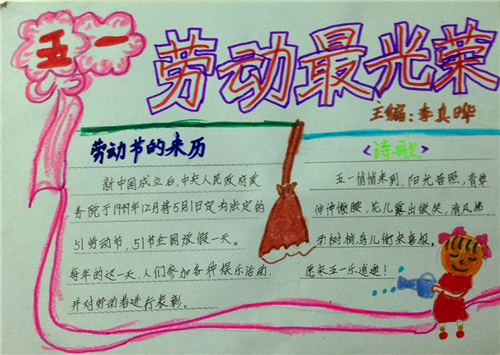 五一
劳动最光荣
主编:李真晔
劳动节的来历
新中国成立后,中央人民政府政
务院于1949年12月将5月1日定为法定的
51劳动节,51节全国放假一天。
每年的这一天,人们参加各种娱乐活动,
并对劳动者进行表彰。
<诗歌>
五一悄悄来到,阳光普照,青草
伸伸懒腰,花儿露出微笑,清风拂
树梢鸟儿衔来喜报。
愿来五一乐逍遥!